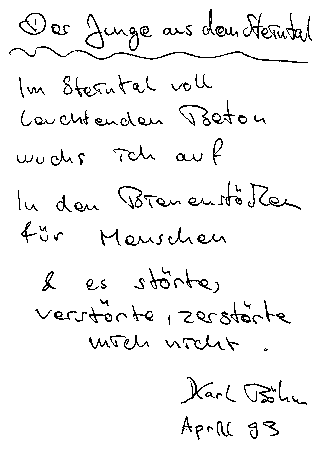 Der Junge aus dem Sterntal
Im Sterntal voll
leuchtenden Beton
wuchs ich auf
In den Bienenstöcken
für Menschen
& es störte,
verstörte, zerstörte
mich nicht.
Karl Böhm
April 93